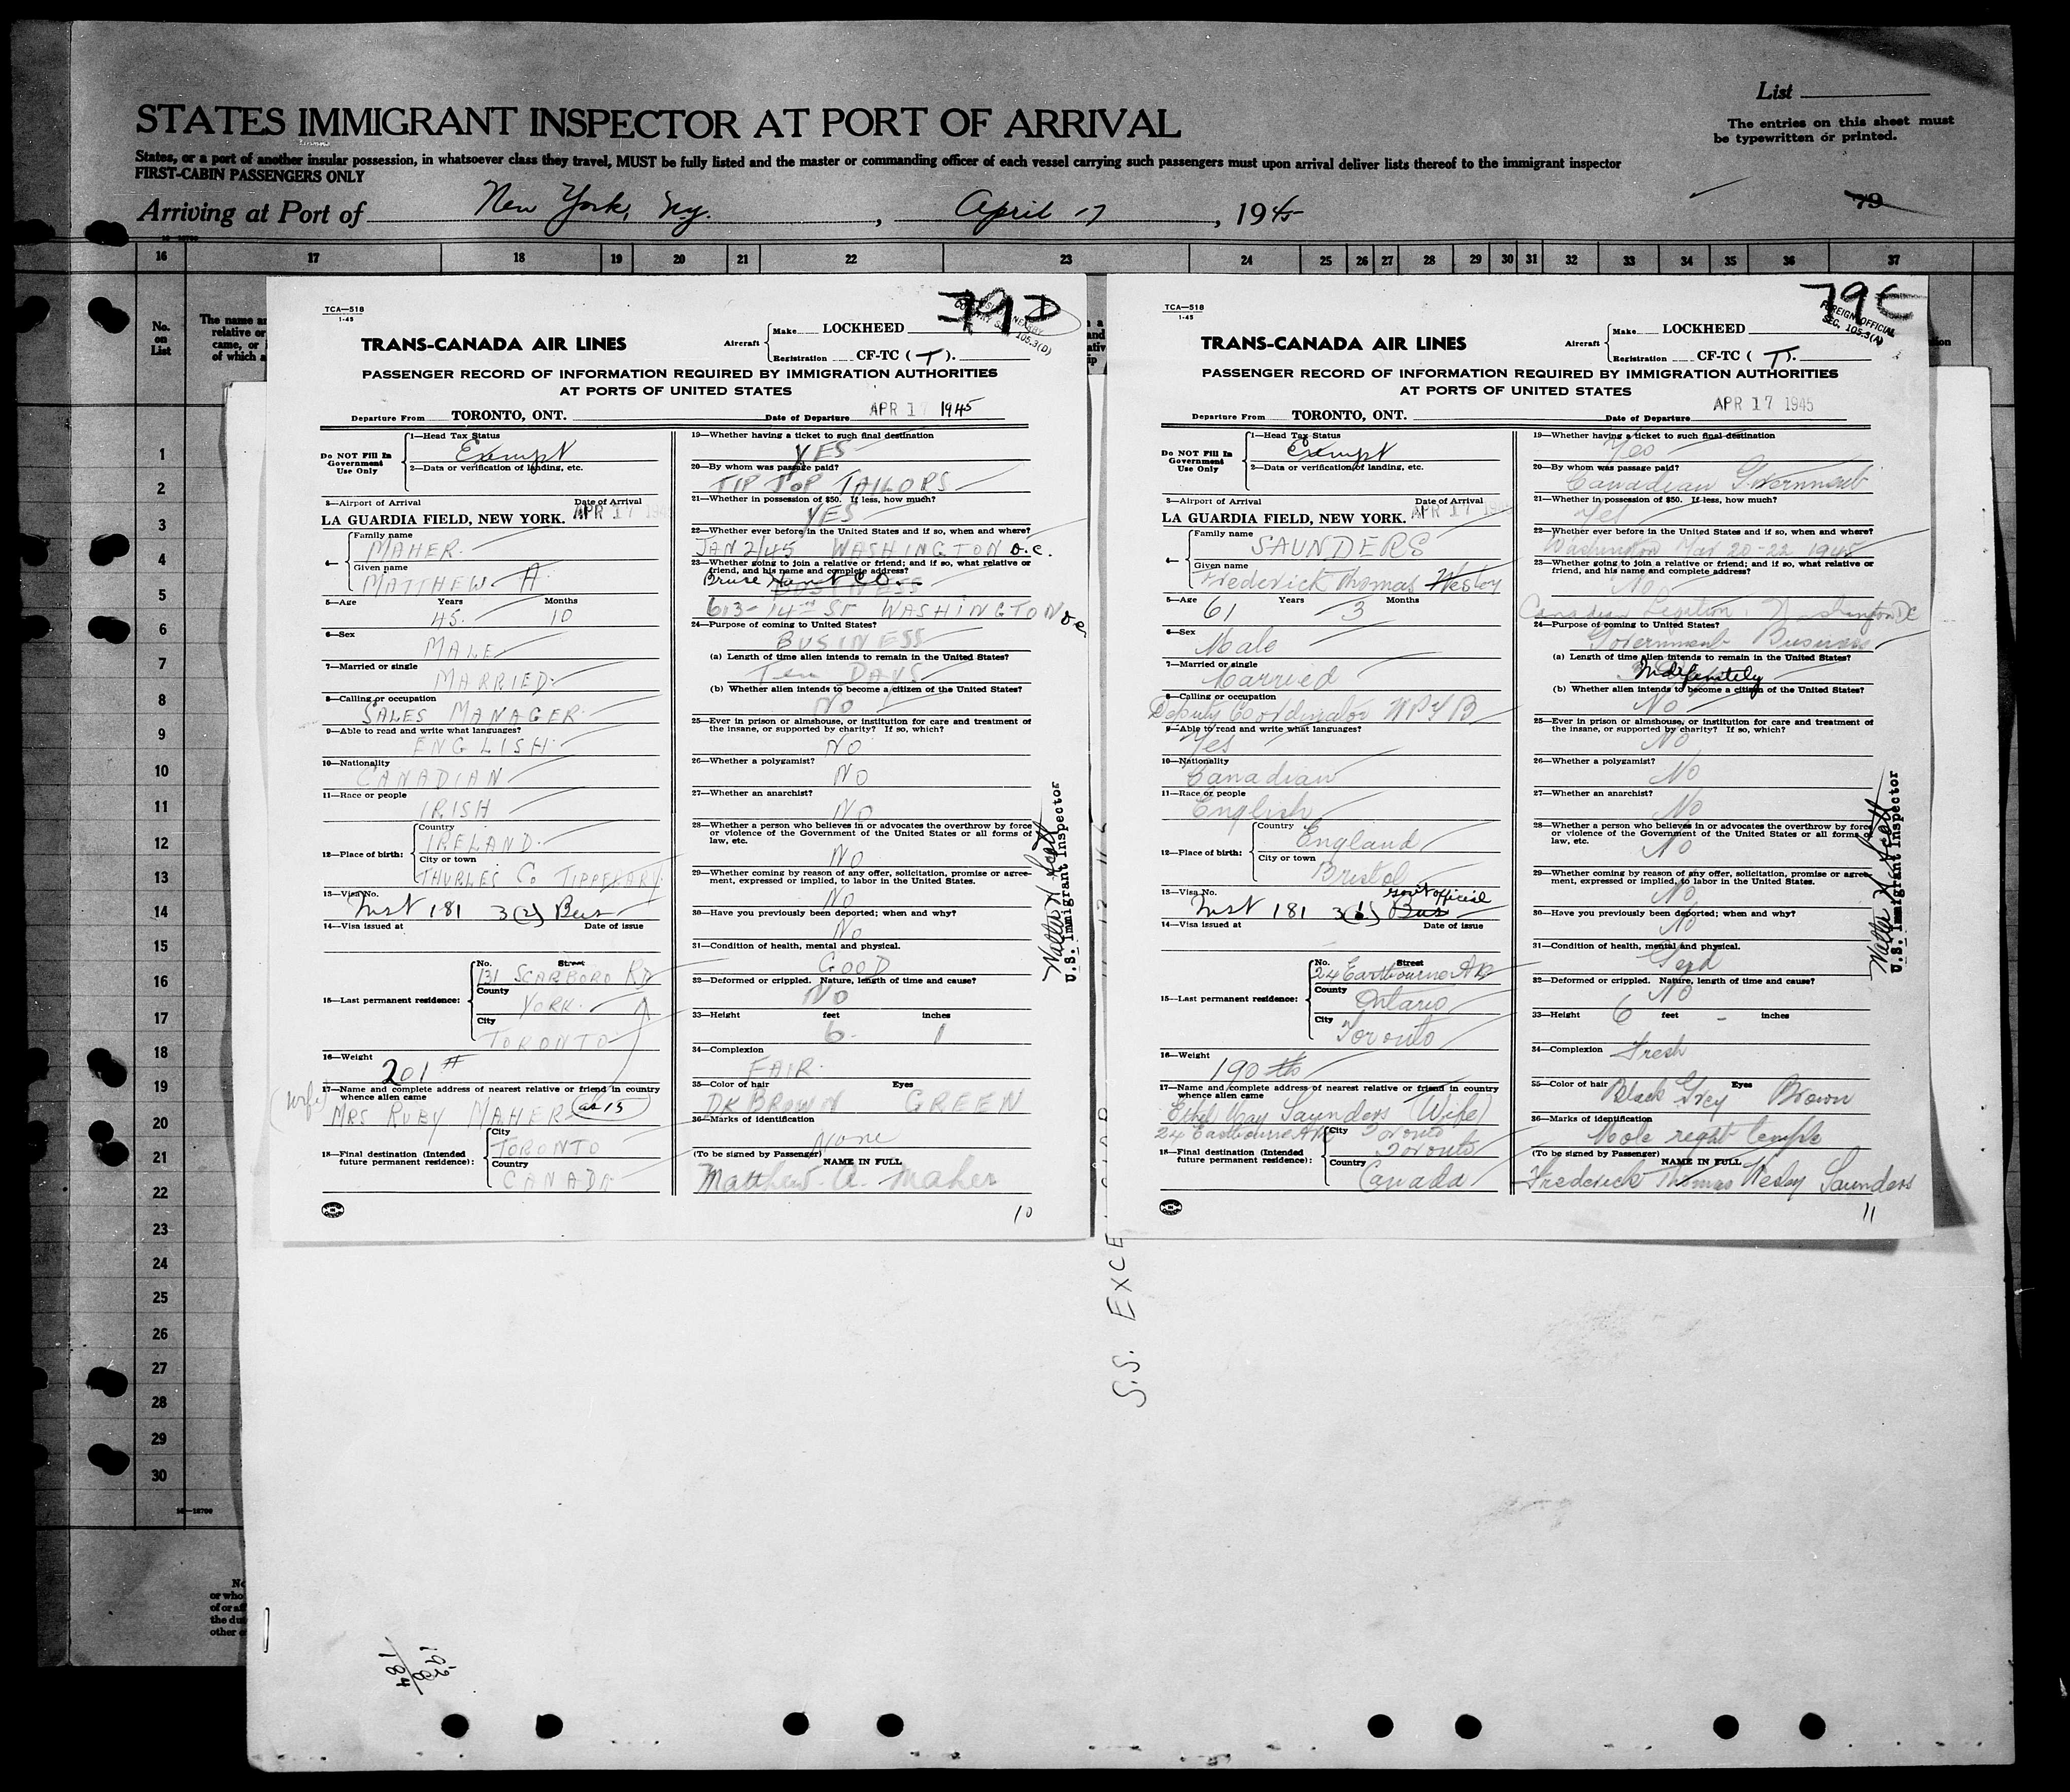 List
STATES IMMIGRANT INSPECTOR AT PORT OF ARRIVAL
The entries on this sheet must
be typewritten or printed.
States, or a port of another insular possession, in whatsoever class they travel, MUST be fully listed and the master or commanding officer of each vessel carrying such passengers must upon arrival deliver lists thereof to the immigrant inspector
FIRST-CABIN PASSENGERS ONLY
Arriving at Port of New York, N.Y., April 17, 1945
79
16 17 18 19 20 21 22 23 24 25 26 27 28 29 30 31 32 33 34 35 36 37
No.
on
List
The name an
relative or
came, or
of which a
1
2
3
4
5
6
7
8
9
10
11
12
13
14
15
16
17
18
19
20
21
22
23
24
25
26
27
28
29
30
or who
of or af
the dut
other
TCA—518
1-45
79 D
Aircraft
Make LOCKHEED
Registration CF-TC (T).
TRANS-CANADA AIR LINES
PASSENGER RECORD OF INFORMATION REQUIRED BY IMMIGRATION AUTHORITIES
AT PORTS OF UNITED STATES
Departure From TORONTO, ONT. Date of Departure APR 17 1945
Do NOT Fill In
Government
Use Only
1—Head Tax Status
Exempt
2—Data or verification of landing, etc.
3—Airport of Arrival Date of Arrival
LA GUARDIA FIELD, NEW YORK. APR 17 194
4—
Family name
MAHER
Given name
MATTHEW A.
5—Age Years Months
45 10
6—Sex
MALE
7—Married or single
MARRIED
8—Calling or occupation
SALES MANAGER
9—Able to read and write what languages?
ENGLISH
10—Nationality
CANADIAN
11—Race or people
IRISH
12—Place of birth:
Country
IRELAND
City or town
THURLES Co TIPPERARY
13—Visa No.
Inst 181 3(2) Bus
14—Visa issued at Date of issue
15—Last permanent residence:
No. Street
131 SCARBORO RD
County
YORK
City
TORONTO
16—Weight
201 #
17—Name and complete address of nearest relative or friend in country
whence alien came
(wife) MRS RUBY MAHER as 15
18—Final destination (Intended
future permanent residence):
City
TORONTO
Country
CANADA
19—Whether having a ticket to such final destination
YES
20—By whom was passage paid?
TIP TOP TAILORS
21—Whether in possession of $50. If less, how much?
YES
22—Whether ever before in the United States and if so, when and where?
JAN 2/45 WASHINGTON D.C.
23—Whether going to join a relative or friend; and if so, what relative or
friend, and his name and complete address?
Bruce Hunt Co. BUSINESS
613-14TH ST WASHINGTON D.C.
24—Purpose of coming to United States?
BUSINESS
(a) Length of time alien intends to remain in the United States?
Ten DAYS
(b) Whether alien intends to become a citizen of the United States?
NO
25—Ever in prison or almshouse, or institution for care and treatment of
the insane, or supported by charity? If so, which?
NO
26—Whether a polygamist?
NO
27—Whether an anarchist?
NO
28—Whether a person who believes in or advocates the overthrow by force
or violence of the Government of the United States or all forms of
law, etc.
NO
29—Whether coming by reason of any offer, solicitation, promise or agree-
ment, expressed or implied, to labor in the United States.
NO
30—Have you previously been deported; when and why?
NO
31—Condition of health, mental and physical.
GOOD
32—Deformed or crippled. Nature, length of time and cause?
NO
33—Height feet inches
6 1
34—Complexion
FAIR
35—Color of hair Eyes
DK BROWN GREEN
36—Marks of identification
None
(To be signed by Passenger) NAME IN FULL
Matthew A. Maher
10
Walter H Scott
U.S. Immigrant Inspector
TCA—518
1-45
79 E
FOREIGN OFFICIAL
SEC. 105.3(A)
Aircraft
Make LOCKHEED
Registration CF-TC (T).
TRANS-CANADA AIR LINES
PASSENGER RECORD OF INFORMATION REQUIRED BY IMMIGRATION AUTHORITIES
AT PORTS OF UNITED STATES
Departure From TORONTO, ONT. Date of Departure APR 17 1945
Do NOT Fill In
Government
Use Only
1—Head Tax Status
Exempt
2—Data or verification of landing, etc.
3—Airport of Arrival Date of Arrival
LA GUARDIA FIELD, NEW YORK. APR 17 194
4—
Family name
SAUNDERS
Given name
Frederick Thomas Wesley
5—Age Years Months
61 3
6—Sex
Male
7—Married or single
Married
8—Calling or occupation
Deputy Coordinator WP&B
9—Able to read and write what languages?
Yes
10—Nationality
Canadian
11—Race or people
English
12—Place of birth:
Country
England
City or town
Bristol
13—Visa No.
Inst 181 3(1) Bus Govt official
14—Visa issued at Date of issue
15—Last permanent residence:
No. Street
24 Eastbourne Av
County
Ontario
City
Toronto
16—Weight
190 lbs
17—Name and complete address of nearest relative or friend in country
whence alien came
Ethel May Saunders (Wife)
24 Eastbourne Av Toronto
18—Final destination (Intended
future permanent residence):
City
Toronto
Country
Canada
19—Whether having a ticket to such final destination
Yes
20—By whom was passage paid?
Canadian Government
21—Whether in possession of $50. If less, how much?
Yes
22—Whether ever before in the United States and if so, when and where?
Washington Mar 20-22 1945
23—Whether going to join a relative or friend; and if so, what relative or
friend, and his name and complete address?
No
Canadian Legation, Washington DC
24—Purpose of coming to United States?
Government Business
(a) Length of time alien intends to remain in the United States?
Indefinitely
(b) Whether alien intends to become a citizen of the United States?
No
25—Ever in prison or almshouse, or institution for care and treatment of
the insane, or supported by charity? If so, which?
No
26—Whether a polygamist?
No
27—Whether an anarchist?
No
28—Whether a person who believes in or advocates the overthrow by force
or violence of the Government of the United States or all forms of
law, etc.
No
29—Whether coming by reason of any offer, solicitation, promise or agree-
ment, expressed or implied, to labor in the United States.
No
30—Have you previously been deported; when and why?
No
31—Condition of health, mental and physical.
Good
32—Deformed or crippled. Nature, length of time and cause?
No
33—Height feet inches
6 -
34—Complexion
Fresh
35—Color of hair Eyes
Black Grey Brown
36—Marks of identification
Mole right temple
(To be signed by Passenger) NAME IN FULL
Frederick Thomas Wesley Saunders
11
Walter H Scott
U.S. Immigrant Inspector
S.S. EXCE